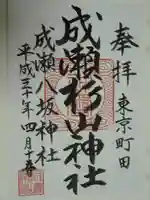 奉拝
東京町田
成瀬杉山神社
成瀬八坂神社
平成三十年四月十